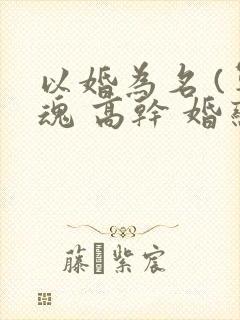 以婚為名(
魂 高幹 婚
藤紫宸